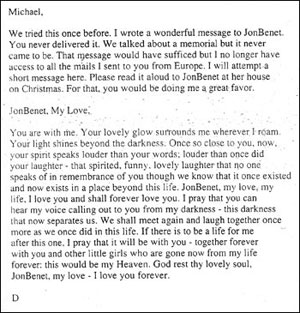 Michael,
We tried this once before. I wrote a wonderful message to JonBenet.
You never delivered it. We talked about a memorial but it never
came to be. That message would have sufficed but I no longer have
access to all the mails I sent to you from Europe. I will attempt a
short message here. Please read it aloud to JonBenet at her house
on Christmas. For that, you would be doing me a great favor.
JonBenet, My Love,
You are with me. Your lovely glow surrounds me wherever I roam.
Your light shines beyond the darkness. Once so close to you, now,
your spirit speaks louder than your words; louder than once did
your laughter - that spirited, funny, lovely laughter that no one
speaks of in remembrance of you though we know that it once existed
and now exists in a place beyond this life. JonBenet, my love, my
life, I love you and shall forever love you. I pray that you can
hear my voice calling out to you from my darkness - this darkness
that now separates us. We shall meet again and laugh together once
more as we once did in this life. If there is to be a life for me
after this one. I pray that it will be with you - together forever
with you and other little girls who are gone now from my life
forever: this would be my Heaven. God rest thy lovely soul,
JonBenet, my love - I love you forever.
D